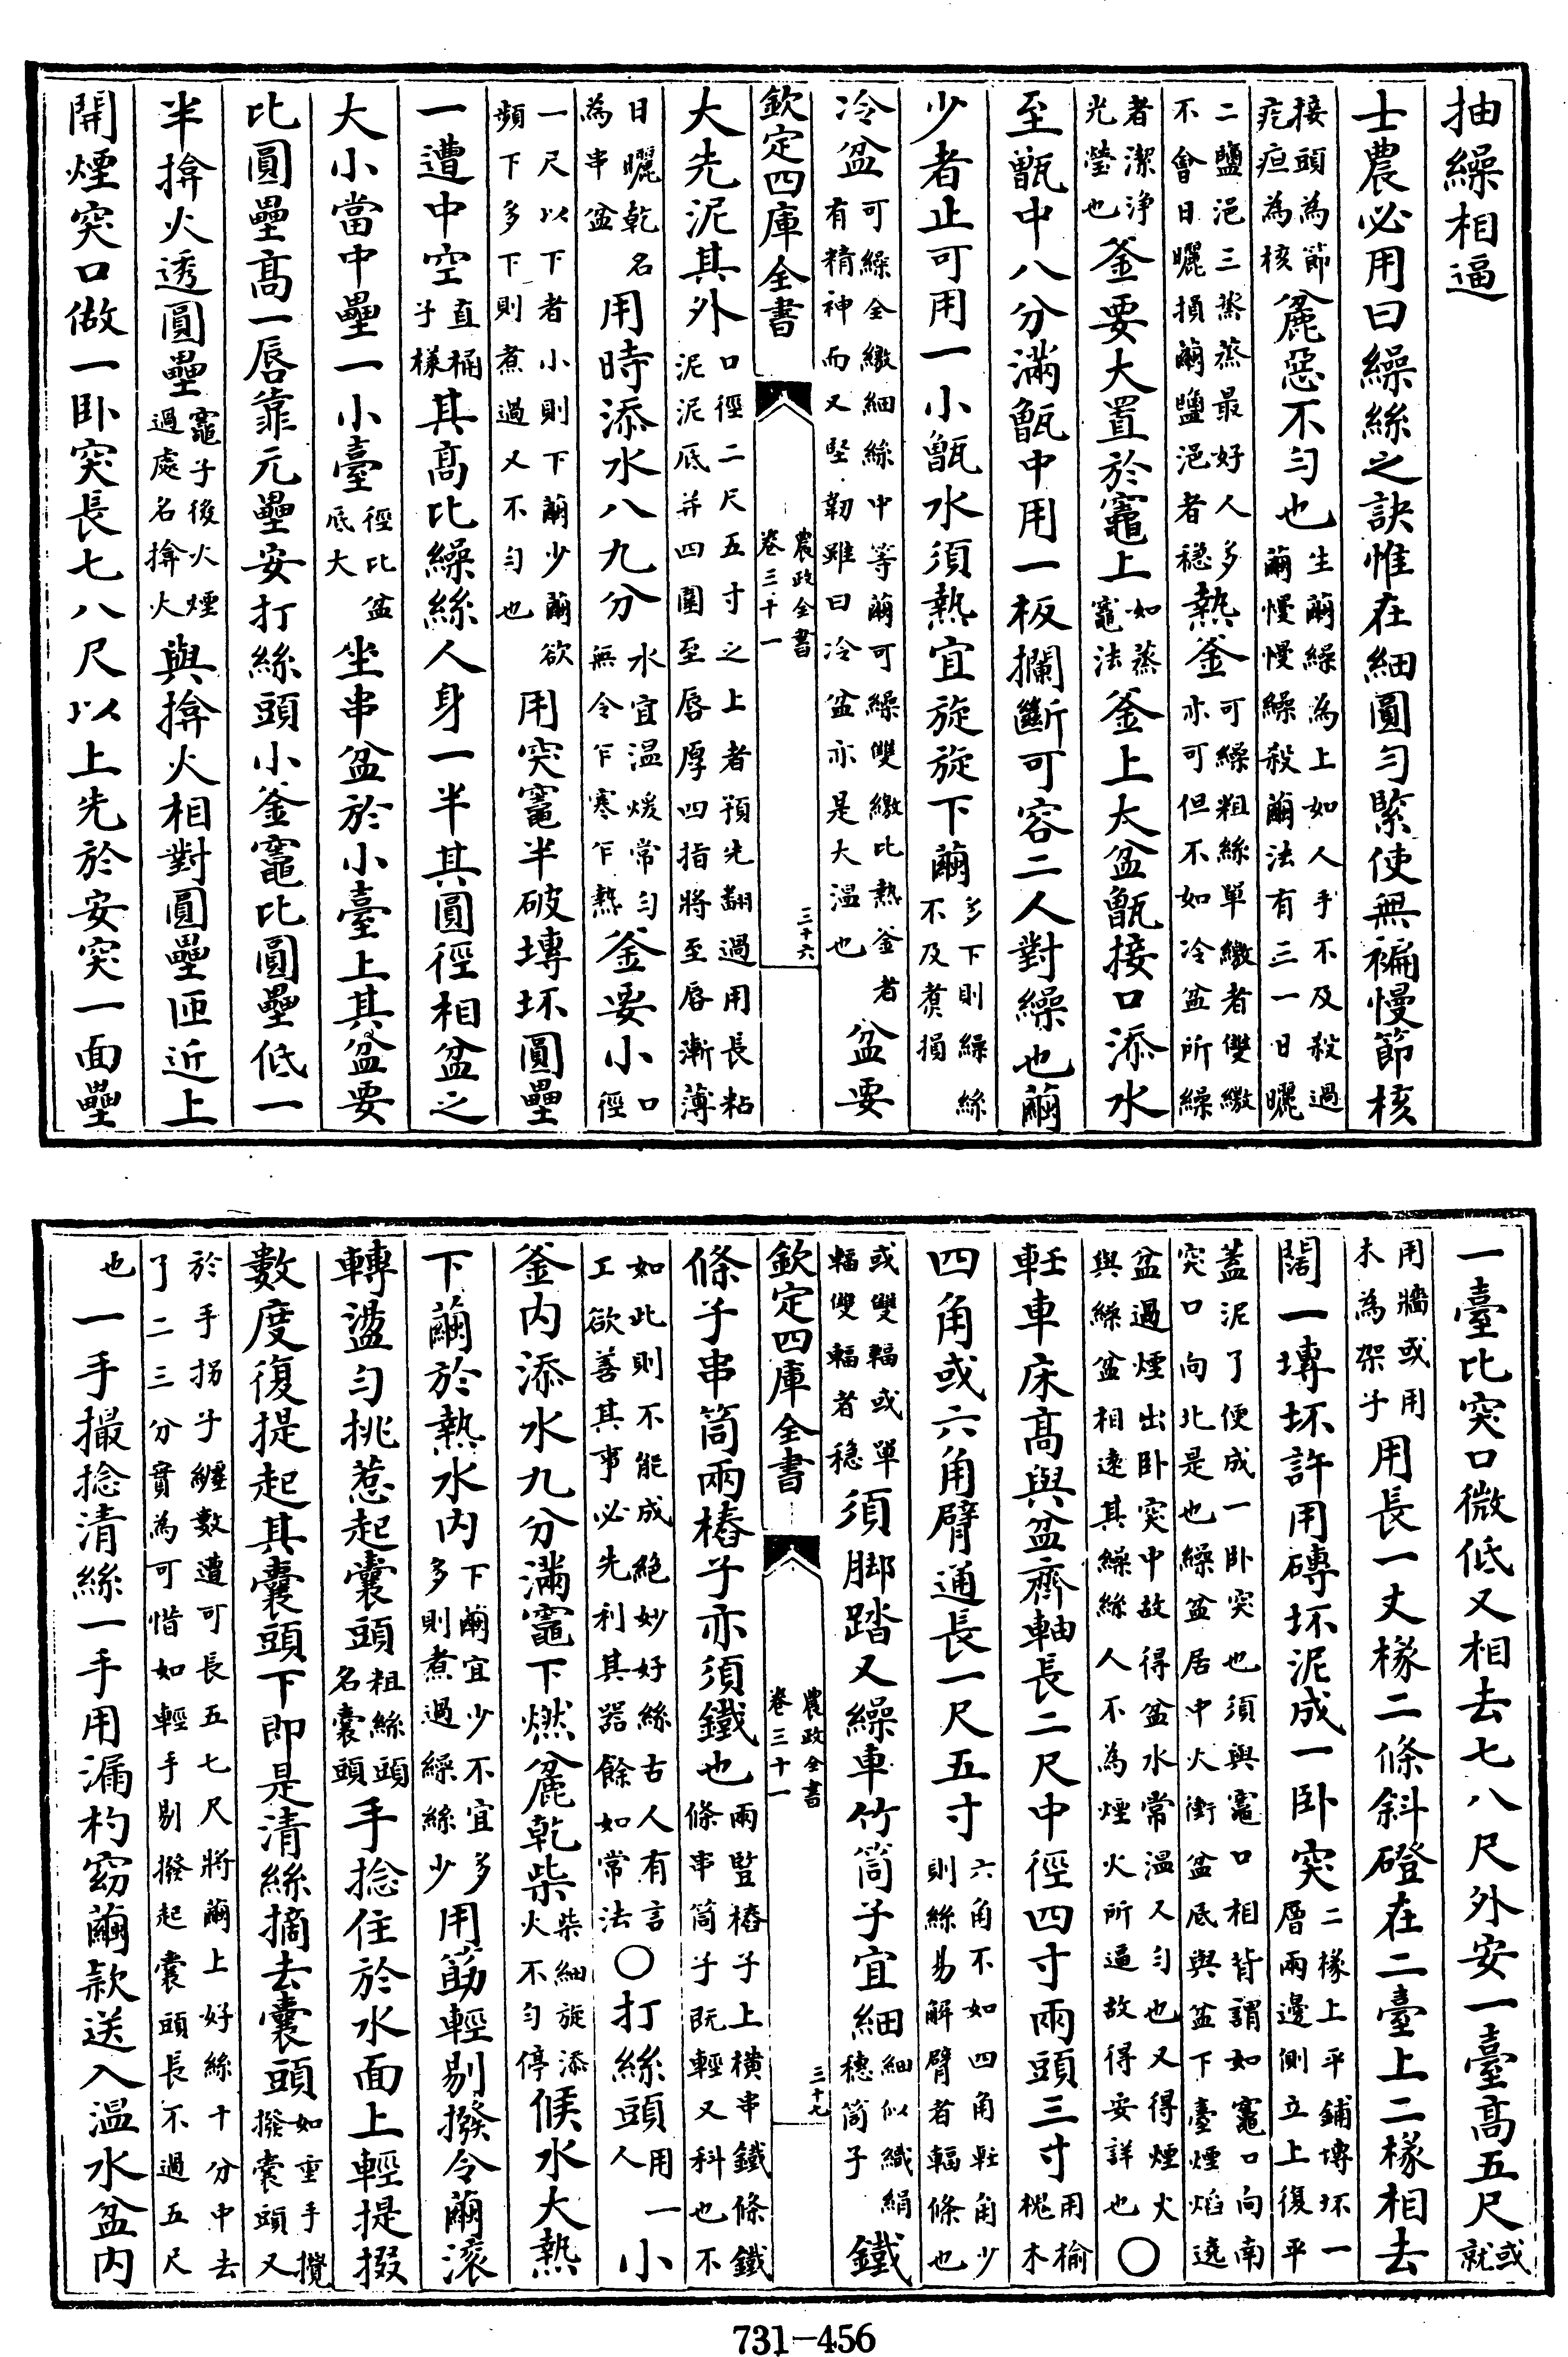 抽繰相逼
士農必用曰繰絲之訣惟在細圓勻緊使無褊慢節核
接頭為節疙疸為核麄惡不勻也生繭繰為上如人手不及殺過繭慢慢繰殺繭法有三一日曬
二鹽浥三蒸蒸最好人多不會日曬損繭鹽浥者穏熱釜可繰粗絲單繳者雙繳亦可但不如冷盆所繰
者潔淨光瑩也釜要大置於竈上如蒸竈法釜上大盆甑接口添水
至甑中八分滿甑中用一板攔斷可容二人對繰也繭
少者止可用一小甑水須熱宜旋旋下繭多下則繰絲不及煑損
冷盆可繰全繳細絲中等繭可繰雙繳比熱釜者有精神而又堅韌雖曰冷盆亦是大温也盆要
欽定四庫全書 農政全書卷三十一 三十六
大先泥其外口徑二尺五寸之上者預先翻過用長粘泥泥底并四圍至唇厚四指將至唇漸薄
日曬乾名為串盆用時添水八九分水宜温煖常勻無令乍寒乍熱釜要小口徑
一尺以下者小則下繭少繭欲頻下多下則煮過又不勻也用突竈半破塼坯圓壘
一遭中空直桶子樣其高比繰絲人身一半其圓徑相盆之
大小當中壘一小臺徑比盆底大坐串盆於小臺上其盆要
比圓壘高一唇靠元壘安打絲頭小釜竈比圓壘低一
半揜火透圓壘竈子後火煙過處名揜火與揜火相對圓壘匝近上
開煙突口做一卧突長七八尺以上先於安突一面壘
一臺比突口微低又相去七八尺外安一臺高五尺或就
用牆或用木為架子用長一丈椽二條斜磴在二臺上二椽相去
闊一塼坯許用磚坯泥成一卧突二椽上平鋪塼坯一層兩邊側立上復平
蓋泥了便成一卧突也須與竈口相背謂如竈口向南突口向北是也繰盆居中火衝盆底與盆下臺煙焰遶
盆過煙出卧突中故得盆水常温又勻也又得煙火與繰盆相遠其繰絲人不為煙火所逼故得安詳也〇
軠車床高與盆齊軸長二尺中徑四寸兩頭三寸用榆槐木
四角或六角臂通長一尺五寸六角不如四角軠角少則絲易解臂者輻條也
或雙輻或單輻雙輻者穏須脚踏又繰車竹筒子宜細細似織絹穗筒子鐵
欽定四庫全書 農政全書卷三十一 三十九
條子串筒兩樁子亦須鐵也兩豎樁子上横串鐵條鐵條串筒子既輕又科也不
如此則不能成絶妙好絲古人有言工欲善其事必先利其器餘如常法〇打絲頭用一人小
釜内添水九分滿竈下燃麄乾柴柴細旋添火不勻停候水大熱
下繭於熱水内下繭宜少不宜多多則煮過繰絲少用筯輕剔撥令繭滚
轉盪勻挑惹起囊頭粗絲頭名囊頭手捻住於水面上輕提掇
數度復提起其囊頭下即是清絲摘去囊頭如重手攪撥囊頭又
於手拐子纏數遭可長五七尺將繭上好絲十分中去了二三分實為可惜如輕手剔撥起囊頭長不過五尺
也一手撮捻清絲一手用漏杓窈繭款送入温水盆内
731-456